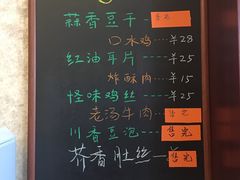 蒜香豆干---售完
口水鸡---¥28
红油耳片---¥25
炸酥肉---¥15
怪味鸡丝---¥25
老汤牛肉
川香豆泡---售完
芥香肚丝—售完